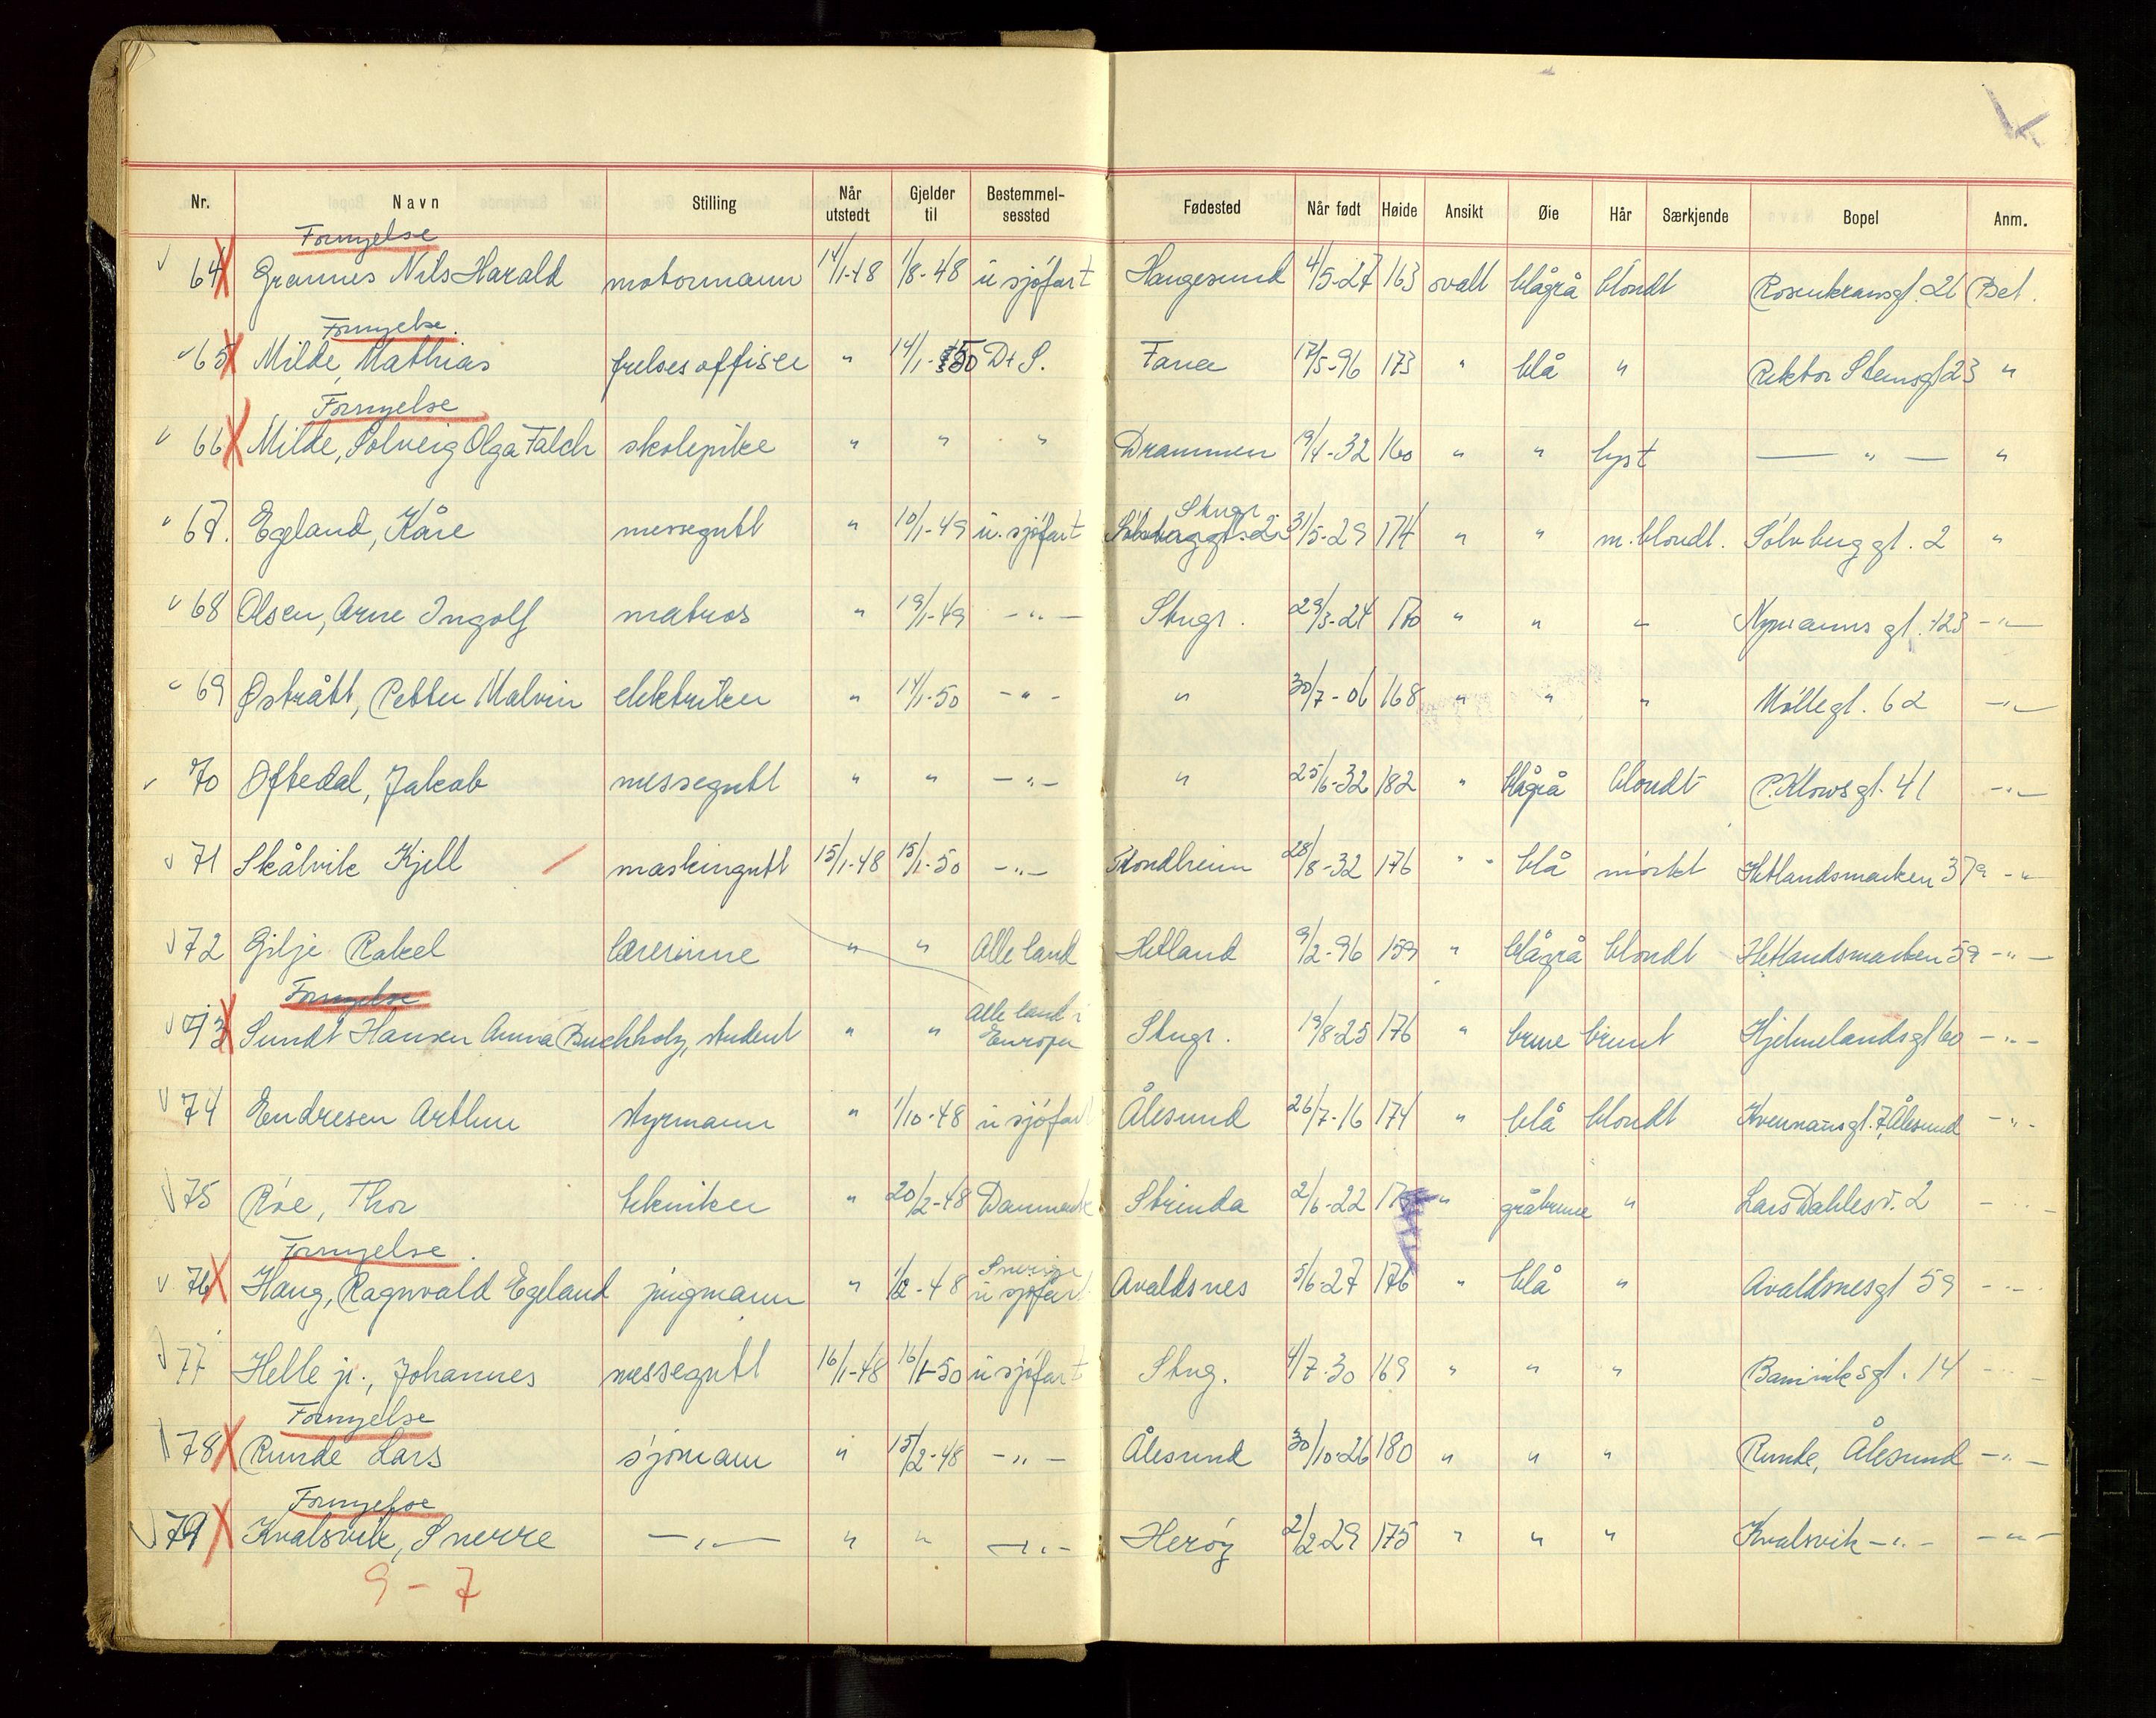 Nr. Navn Stilling Når utstedt Gjelder til Bestemmelsessted Fødested Når født Høide Ansikt Øie Hår Særkjende Bopel Anm.
Fornyelse
64 Grannes Nils Harald motormann 14/1-48 1/8-48 u sjøfart Haugesund 4/5-27 163 ovalt blågrå blondt Rosenkransgt. 26 Bet.
Fornyelse.
65 Milde, Mathias frelsesoffiser " 14/1-50 D+S. Fana 17/5-96 173 " blå " Rektor Steensgt 23 "
Fornyelse
66 Milde, Solveig Olga Falch skolepike " " " Drammen 19/4-32 160 " " lyst — " — "
Stngr.
67. Egeland, Kåre messegutt " 10/1-49 u. sjøfart Sølvberggt. 2. 31/5-29 174 " " m. blondt. Sølvberggt. 2 "
68 Olsen, Arne Ingolf matros " 19/1-49 -"- Stngr. 29/3-24 170 " " " Nymannsgt. 123 -"-
69 Østrått, Petter Malvin elektriker " 14/1-50 -"- " 30/7-06 168 " " " Møllegt. 62 -"-
70 Oftedal, Jakob messegutt " " -"- " 25/6-32 182 " blågrå blondt P. Klowsgt. 41 -"-
71 Skålvik Kjell maskingutt 15/1-48 15/1-50 -"- Trondheim 28/8-32 176 " blå mørkt Hetlandsmarken 379 -"-
72 Gilje Rakel lærerinne " " Alle land Hetland 9/2-96 159 " blågrå blondt Hetlandsmarken 59 -"-
Fornyelse
73 Sundt Hansen Anna Buchholz, student " " Alle land i Europa Stngr. 19/8-25 176 " brune brunt Hjelmelandsgt 60 -"-
74 Endresen Arthur styrmann " 1/10-48 u sjøfart Ålesund 26/7-16 174 " blå blondt Kvennansgt. 7, Ålesund -"-
75 Röe, Thor tekniker " 20/2-48 Danmark Strinda 2/6-22 " gråbrune " Lars Dahlesv. 2 -"-
Fornyelse.
76 Haug, Ragnvald Egeland jungmann " 1/2-48 Sverige u sjøfart Avaldsnes 5/6-27 176 " blå " Avaldsnesgt 59 -"-
77 Helle jr., Johannes messegutt 16/1-48 16/1-50 u sjøfart Stvg. 4/7-30 169 " " " Baneviksgt. 14 -"-
Fornyelse
78 Runde Lars sjømann " 15/2-48 -"- Ålesund 30/10-26 180 " " " Runde, Ålesund -"-
Fornyelse
79 Kvalsvik, Sverre -"- " " -"- Herøy 2/2-29 175 " " " Kvalsvik -"- -"-
9 - 7